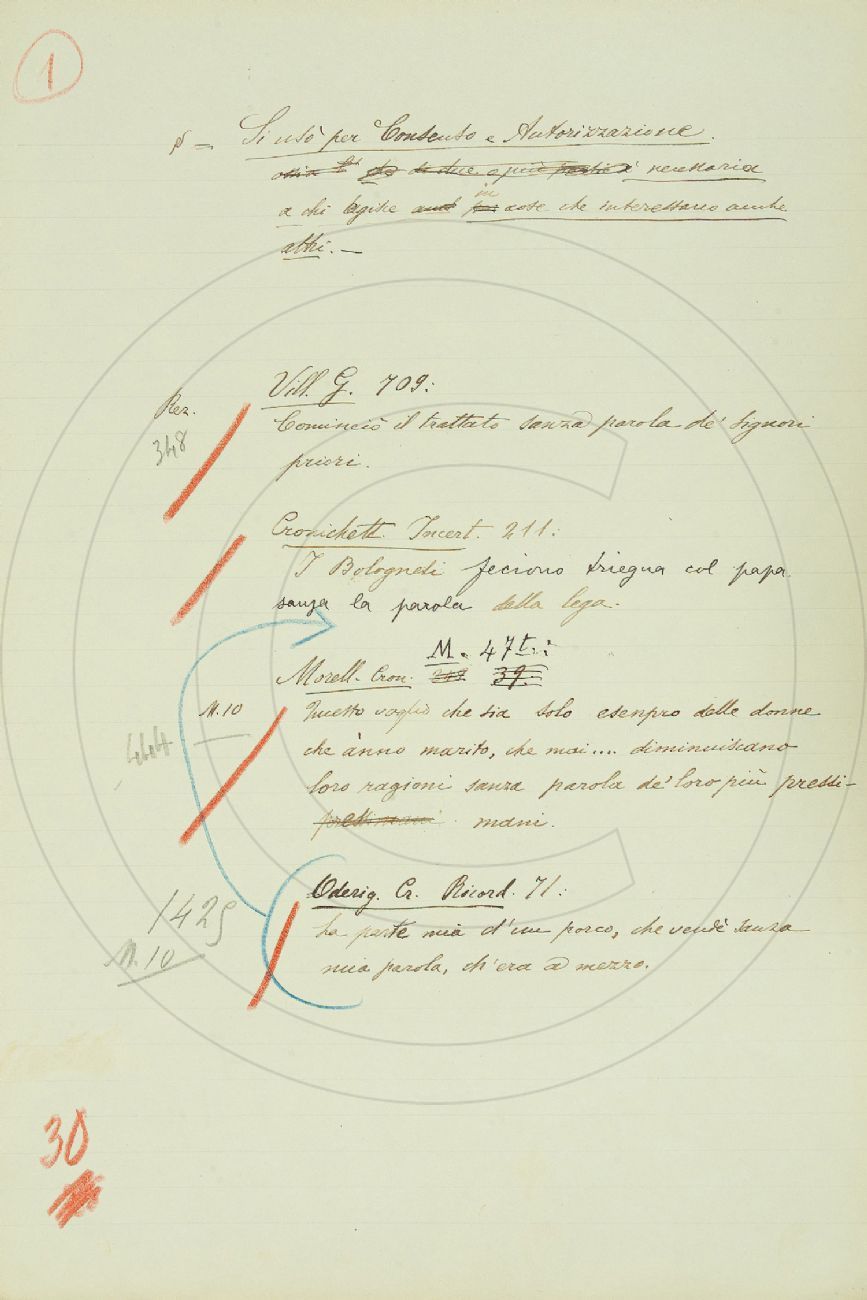 1
§ = Si usò per Consenso e Autorizzazione
ossia di due o più parti è necessaria
a chi agisce in cose che interessano anche
altri. —
Vill. G. 709:
Rez.
348
Cominciò il trattato sanza parola de' signori
priori.
Cronichett. Incert. 211:
I Bolognesi feciono triegua col papa
sanza la parola della lega.
M. 47t.:
Morell. Cron. 39.
M. 10
444
Questo voglio che sia solo esenpro delle donne
che ànno marito, che mai.... diminuiscano
loro ragioni sanza parola de' loro più pressi-
pressimani mani.
Oderig. Cr. Ricord. 71:
1429
M. 10
La parte mia d'un porco, che vendé sanza
mia parola, ch'era a mezzo.
30